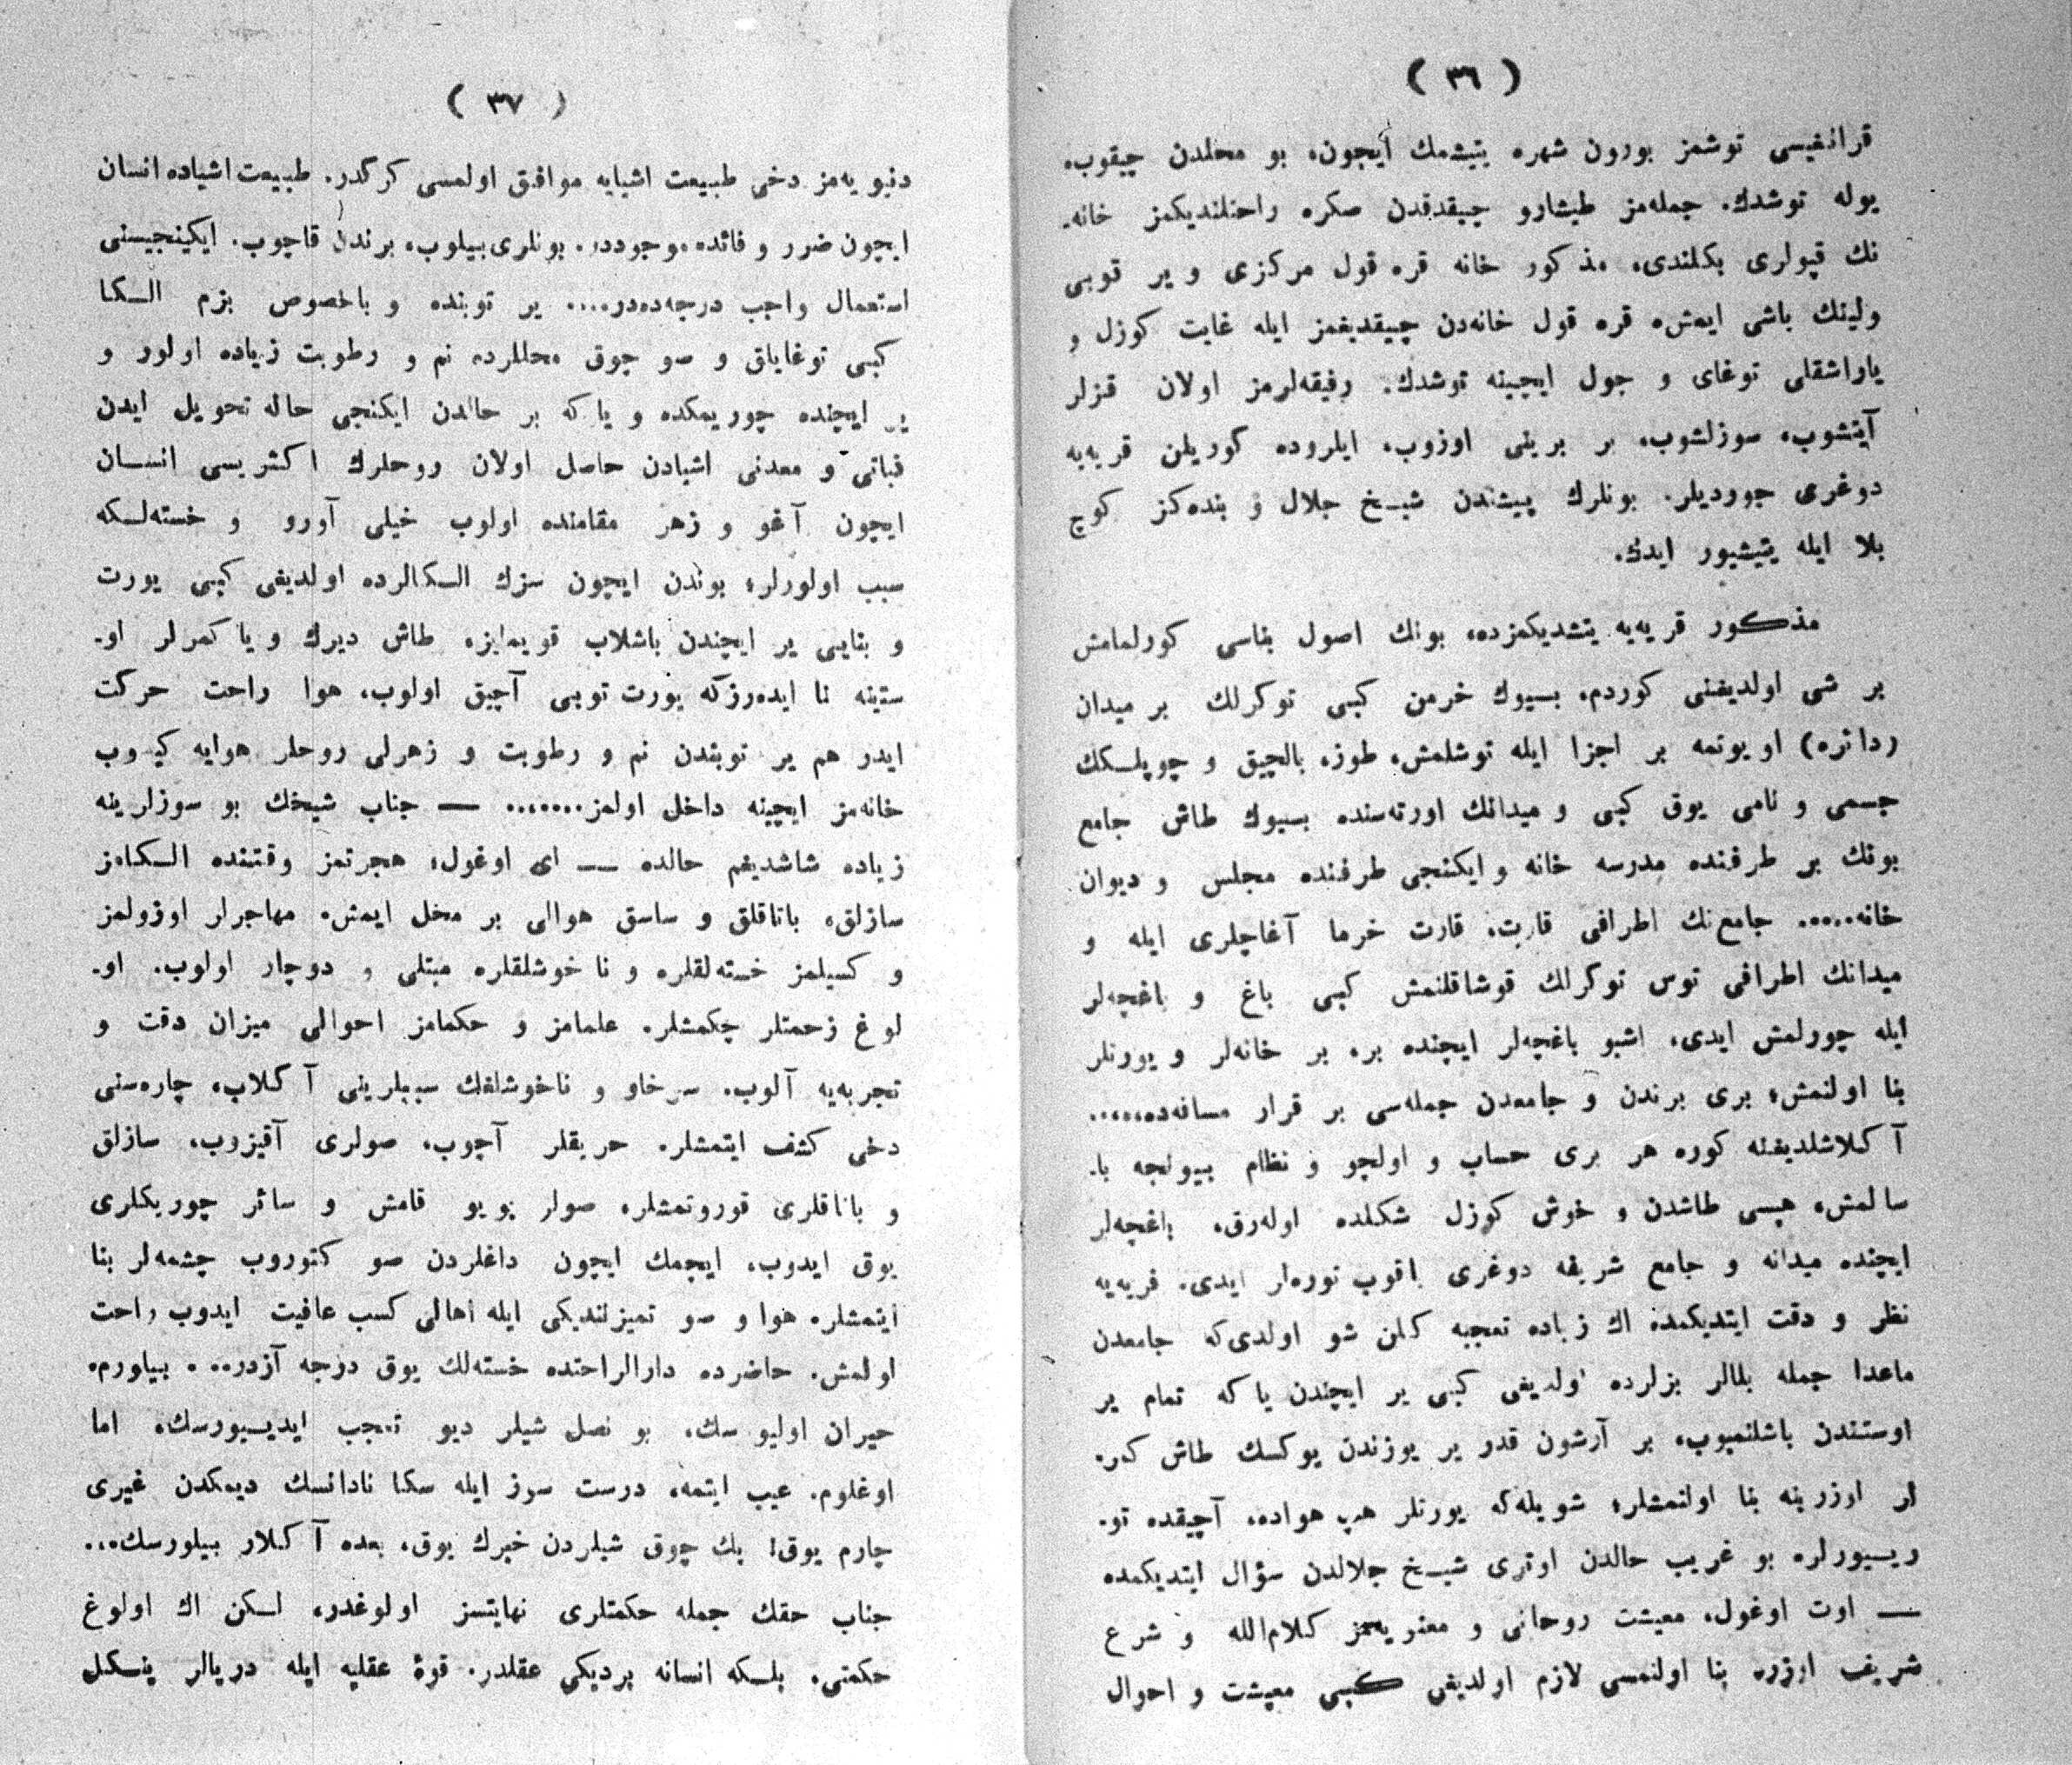 ( ٣٦ )
قرانغیسی توشمز بورون شهره یتیشمك ایچون، بو محلدن چیقوب،
یوله توشدك. جمله‌مز طیشارو چیقدقدن صكره راحتلندیكمز خانه‌-
نك قپولری بكلندی، مذكور خانه قره قول مركزی و یر توبی
ولینك باشی ایمش، قره قول خانه‌دن چیقدیغمز ایله غایت كوزل و
یاراشقلی توغای و چول ایچینه توشدك. رفیقه‌لرمز اولان قزلر
آیتشوب، سوزلشوب، بر برینی اوزوب، ایلروده كوریلن قریه‌یه
دوغری جوردیلر. بونلرك پیشندن شیخ جلال و بنده‌كز كوچ
بلا ایله یتیشیور ایدك.
مذكور قریه‌یه یتشدیكمزده، بونك اصول بناسی كورلمامش
بر شی اولدیغنی كوردم، بسیوك خرمن كبی توكرلك بر میدان
(دائره) اویونمه بر اجزا ایله توشلمش، طوز، بالچیق و چوپلسكك
جسمی و نامی یوق كبی و میدانك اورته‌سنده بسیوك طاش جامع
بونك بر طرفنده مدرسه خانه و ایكنجی طرفنده مجلس و دیوان
خانه..... جامع‌نك اطرافی قارت، قارت خرما آغاچلری ایله و
میدانك اطرافی توس توكرلك قوشاقلنمش كبی باغ و باغچه‌لر
ایله چورلمش ایدی، اشبو باغچه‌لر ایچنده بره بر خانه‌لر و یورتلر
بنا اولنمش؛ بری برندن و جامعدن جمله‌سی بر قرار مسافه‌ده......
آكلاشلدیغنه كوره هر بری حساب و اولچو و نظام بیونجه با-
سالمش، هپسی طاشدن و خوش كوزل شكلده اوله‌رق، باغچه‌لر
ایچنده میدانه و جامع شریفه دوغری باقوب توره‌لر ایدی. قریه‌یه
نظر و دقت ایتدیكمده اك زیاده تعجبه كلن شو اولدی‌كه جامعدن
ماعدا جمله بنالر بزلرده اولدیغی كبی یر ایچندن یا كه تمام یر
اوستندن باشلنمیوب، بر آرشون قدر یر یوزندن یوكسك طاش كمر-
لر اوزرینه بنا اولنمشلر؛ شویله‌كه یورتلر هب هواده، آچیقده تو-
ریسیورلر، بو غریب حالدن اوتری شیخ جلالدن سؤال ایتدیكمده
— اوت اوغول، معیشت روحانی و معنریه‌مز كلام‌الله و شرع
شریف اوزره بنا اولنمسی لازم اولدیغی كبی معیشت و احوال
( ٣٧ )
دنیویه‌مز دخی طبیعت اشیایه موافق اولمسی كركدر. طبیعت اشیاده انسان
ایچون ضرر و فائده موجوددر. بونلری بیلوب، برندن قاچوب. ایكینجیسنی
استعمال واجب درجه‌ده‌در.... یر توبنده و باخصوص بزم السكا
كبی توغایاق و صو چوق محللرده نم و رطوبت زیاده اولور و
یر ایچنده چوریمكده و یا كه بر حالدن ایكنجی حاله تحویل ایدن
نباتی و معدنی اشیادن حاصل اولان روحلرك اكثریسی انسان
ایچون آغو و زهر مقامنده اولوب خیلی آورو و خسته‌لسكه
سبب اولورلر؛ بوندن ایچون سزك السكالرده اولدیغی كبی یورت
و بنایی یر ایچندن باشلاب قویمایز، طاش دیرك و یا كمرلر او-
ستینه نا ایده‌رزكه یورت توبی آچیق اولوب، هوا راحت حركت
ایدر هم یر توبندن نم و رطوبت و زهرلی روحلر هوایه كیدوب
خانه‌مز ایچینه داخل اولمز....... — جناب شیخك بو سوزلرینه
زیاده شاشدیغم حالده — ای اوغول؛ هجرتمز وقتنده السكامز
سازلق، باتاقلق و ساسق هوالی بر محل ایمش. مهاجرلر اوزولمز
و كسیلمز خسته‌لقلره و نا خوشلقلره مبتلی و دوچار اولوب. او-
لوغ زحمتلر چكمشلر. علمامز و حكمامز احوالی میزان دقت و
تجربه‌یه آلوب. سرخاو و ناخوشلقك سببلرینی آكلاب، چاره‌سنی
دخی كشف ایتمشلر. حریقلر آچوب، صولری آقیزوب، سازلق
و باتاقلری قوروتمشلر، صولر بویو قامش و سائر چوریكلری
یوق ایدوب، ایچمك ایچون داغلردن صو كتوروب چشمه‌لر بنا
ایتمشلر، هوا و صو تمیزلندیكی ایله اهالی كسب عافیت ایدوب راحت
اولمش. حاضرده دارالراحتده خسته‌لك یوق درجه آزدر... بیلورم،
حیران اولیورسك، بو نصل شیلر دیو تعجب ایدیسیورسك، اما
اوغلوم. عیب ایتمه، درست سوز ایله سكا نادانسك دیمكدن غیری
چارم یوق! بك چوق شیلردن خبرك یوق، بعده آكلار بیلورسك...
جناب حقك جمله حكمتلری نهایتسز اولوغدر، لسكن اك اولوغ
حكمتی، بلسكه انسانه بردیكی عقلدر. قوهٔ عقلیه ایله دریالر ینسكل